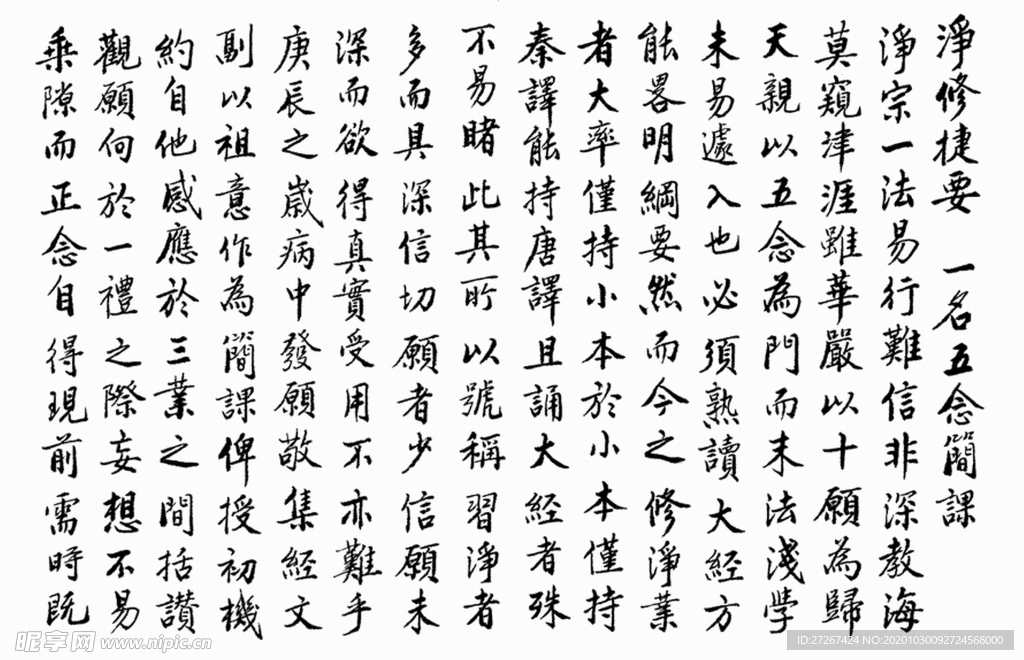 淨修捷要 一名五念簡課
淨宗一法易行難信非深教海
莫窺津涯雖華嚴以十願為歸
天親以五念為門而末法淺學
未易遽入也必須熟讀大經方
能畧明綱要然而今之修淨業
者大率僅持小本於小本僅持
秦譯能持唐譯且誦大經者殊
不易睹此其所以號稱習淨者
多而具深信切願者少信願未
深而欲得真實受用不亦難乎
庚辰之歲病中發願敬集經文
副以祖意作為簡課俾授初機
約自他感應於三業之間括讚
觀願向於一禮之際妄想不易
乘隙而正念自得現前需時既
昵享网 www.nipic.cn
ID:27267424 NO:20201030092724568000